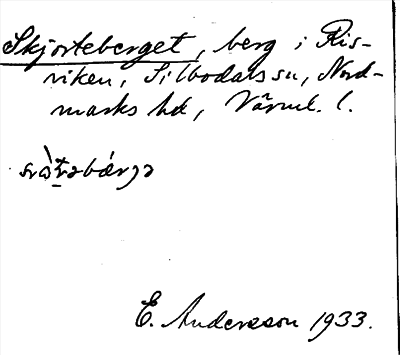 Skjorteberget, berg i Ris-
riken, Silbodals sn, Nord-
marks hd, Värml. l.
E. Andersson 1933.